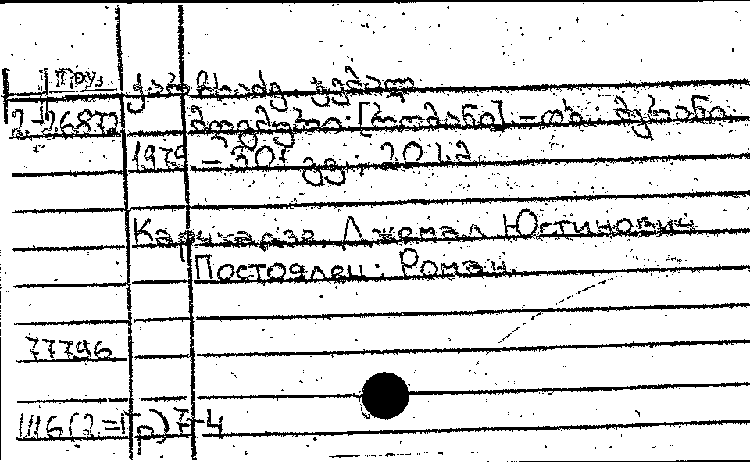 Груз. ქარჩხაძე, ჯემალ
2-26872 მოგმური: [რომანი] - თბ.: მერანი
1979 - 307 გვ.; 20 სმ
Карчхадзе, Джемал Юстинович
Постоялец: Роман.
77796
Ш6(2=Гр)7-4